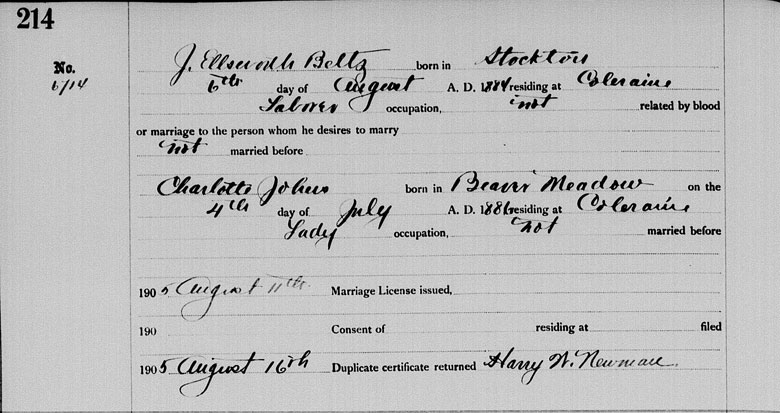 214
No.
6714
J. Ellsworth Beltz born in Stockton
6th day of August A. D. 1884 residing at Coleraine
Laborer occupation, not related by blood
or marriage to the person whom he desires to marry
not married before
Charlotte Johns born in Beaver Meadow on the
4th day of July A. D. 1886 residing at Coleraine
Lady occupation, not married before
1905 August 11th Marriage License issued,
190 Consent of residing at filed
1905 August 16th Duplicate certificate returned Harry W. Newman